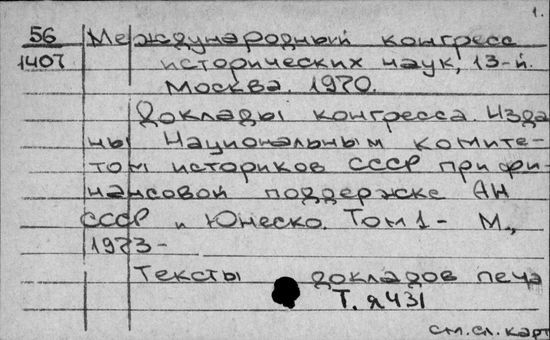 1.
56 Международный конгресс
1407 исторических наук, 13-й.
Москва. 1970.
Доклады конгресса. Изда
ны Национальным комите-
том историков СССР при фи-
нансовой поддержке АН
СССР и Юнеско. Том 1 - М.,
1973-
Тексты докладов печа
Т. я431
см. сл. карт